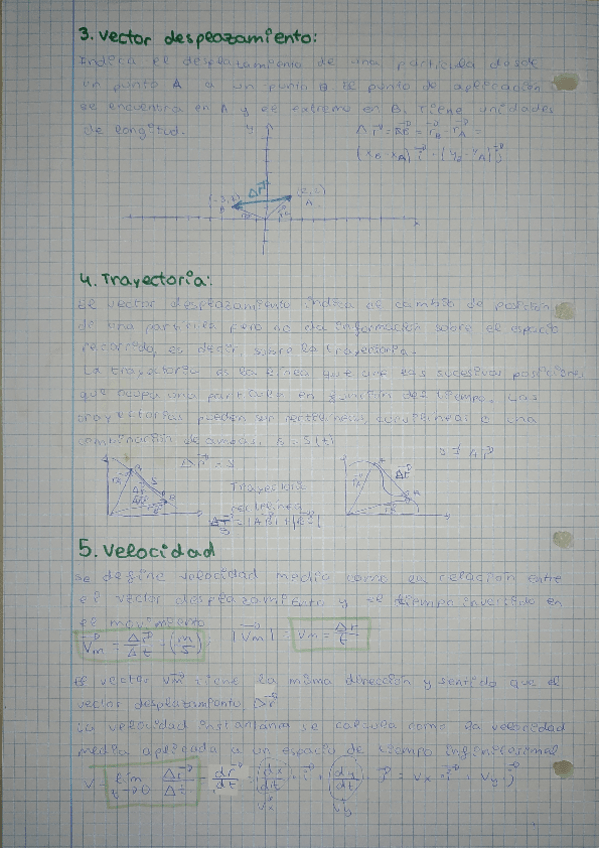 3. Vector desplazamiento:
Indica el desplazamiento de una partícula desde
un punto A a un punto B. El punto de aplicación
se encuentra en A y el extremo en B. Tiene unidades
de longitud.
Δr = AB = r_B - r_A =
(x_B - x_A) i
y
Δr
A
x
4. Trayectoria:
El vector desplazamiento indica el cambio de posición
de una partícula pero no da información sobre el espacio
recorrido, es decir, sobre la trayectoria.
La trayectoria es la línea que une las sucesivas posiciones
que ocupa una partícula en función del tiempo. Las
trayectorias pueden ser rectilíneas, curvilíneas o una
combinación de ambas. s = s(t)
Δr = s
Trayectoria
rectilínea
Δr
5. Velocidad
Se define velocidad media como la relación entre
el vector desplazamiento y el tiempo invertido en
el movimiento
Vm = Δr/Δt (m/s) |Vm| Vm = Δr/t
El vector Vm tiene la misma dirección y sentido que el
vector desplazamiento Δr
La velocidad instantánea se calcula como la velocidad
media aplicada a un espacio de tiempo infinitesimal
V = lim Δr/Δt = dr/dt = dx/dt · i + dy/dt · j = Vx · i + Vy j
Vx Vy